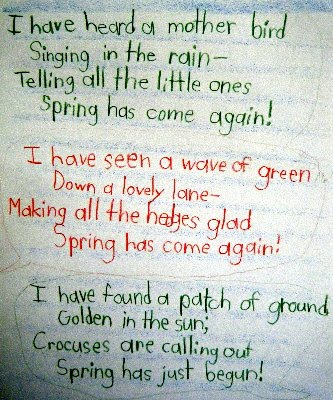 I have heard a mother bird
Singing in the rain—
Telling all the little ones
Spring has come again!
I have seen a wave of green
Down a lovely lane—
Making all the hedges glad
Spring has come again!
I have found a patch of ground
Golden in the sun;
Crocuses are calling out
Spring has just begun!